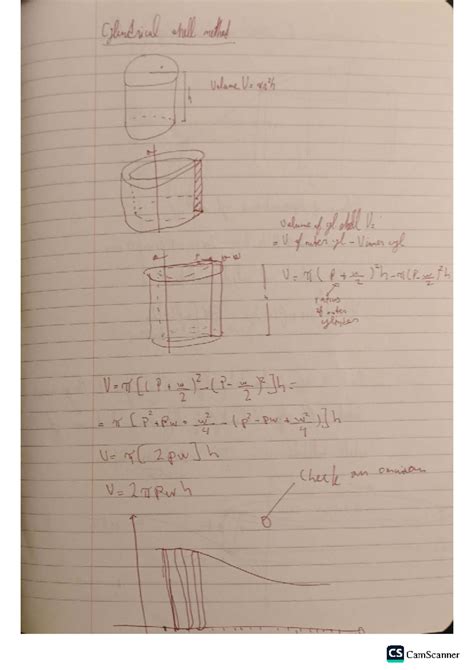 Cylindrical shell method
r
h
Volume V= πr²h
Volume of cyl shell V=
= V of outer cyl - V inner cyl
V= π(P + w/2)²h - π(P - w/2)²h
radius
of outer
cylinder
V= π[(P + w/2)² - (P - w/2)²]h =
= π[P² + Pw + w²/4 - (P² - Pw + w²/4)]h
V= π[2Pw]h
V= 2πPwh
Check an
CS CamScanner